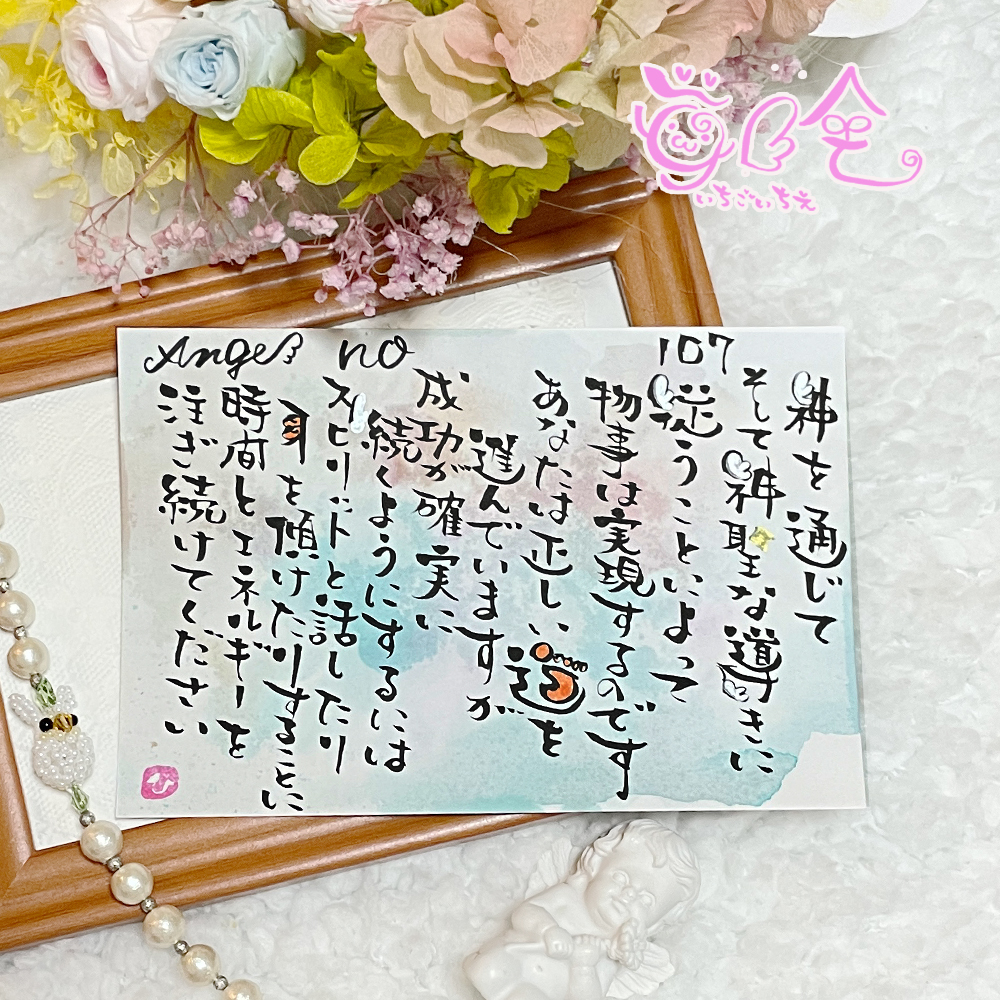 いちごいちえ
Angel no 107
神を通じて
そして神聖な導きに
従うことによって
物事は実現するのです
あなたは正しい道を
進んでいますが
成功が確実に
続くようにするには
スピリットと話したり
耳を傾けたりすることに
時間とエネルギーを
注ぎ続けてください